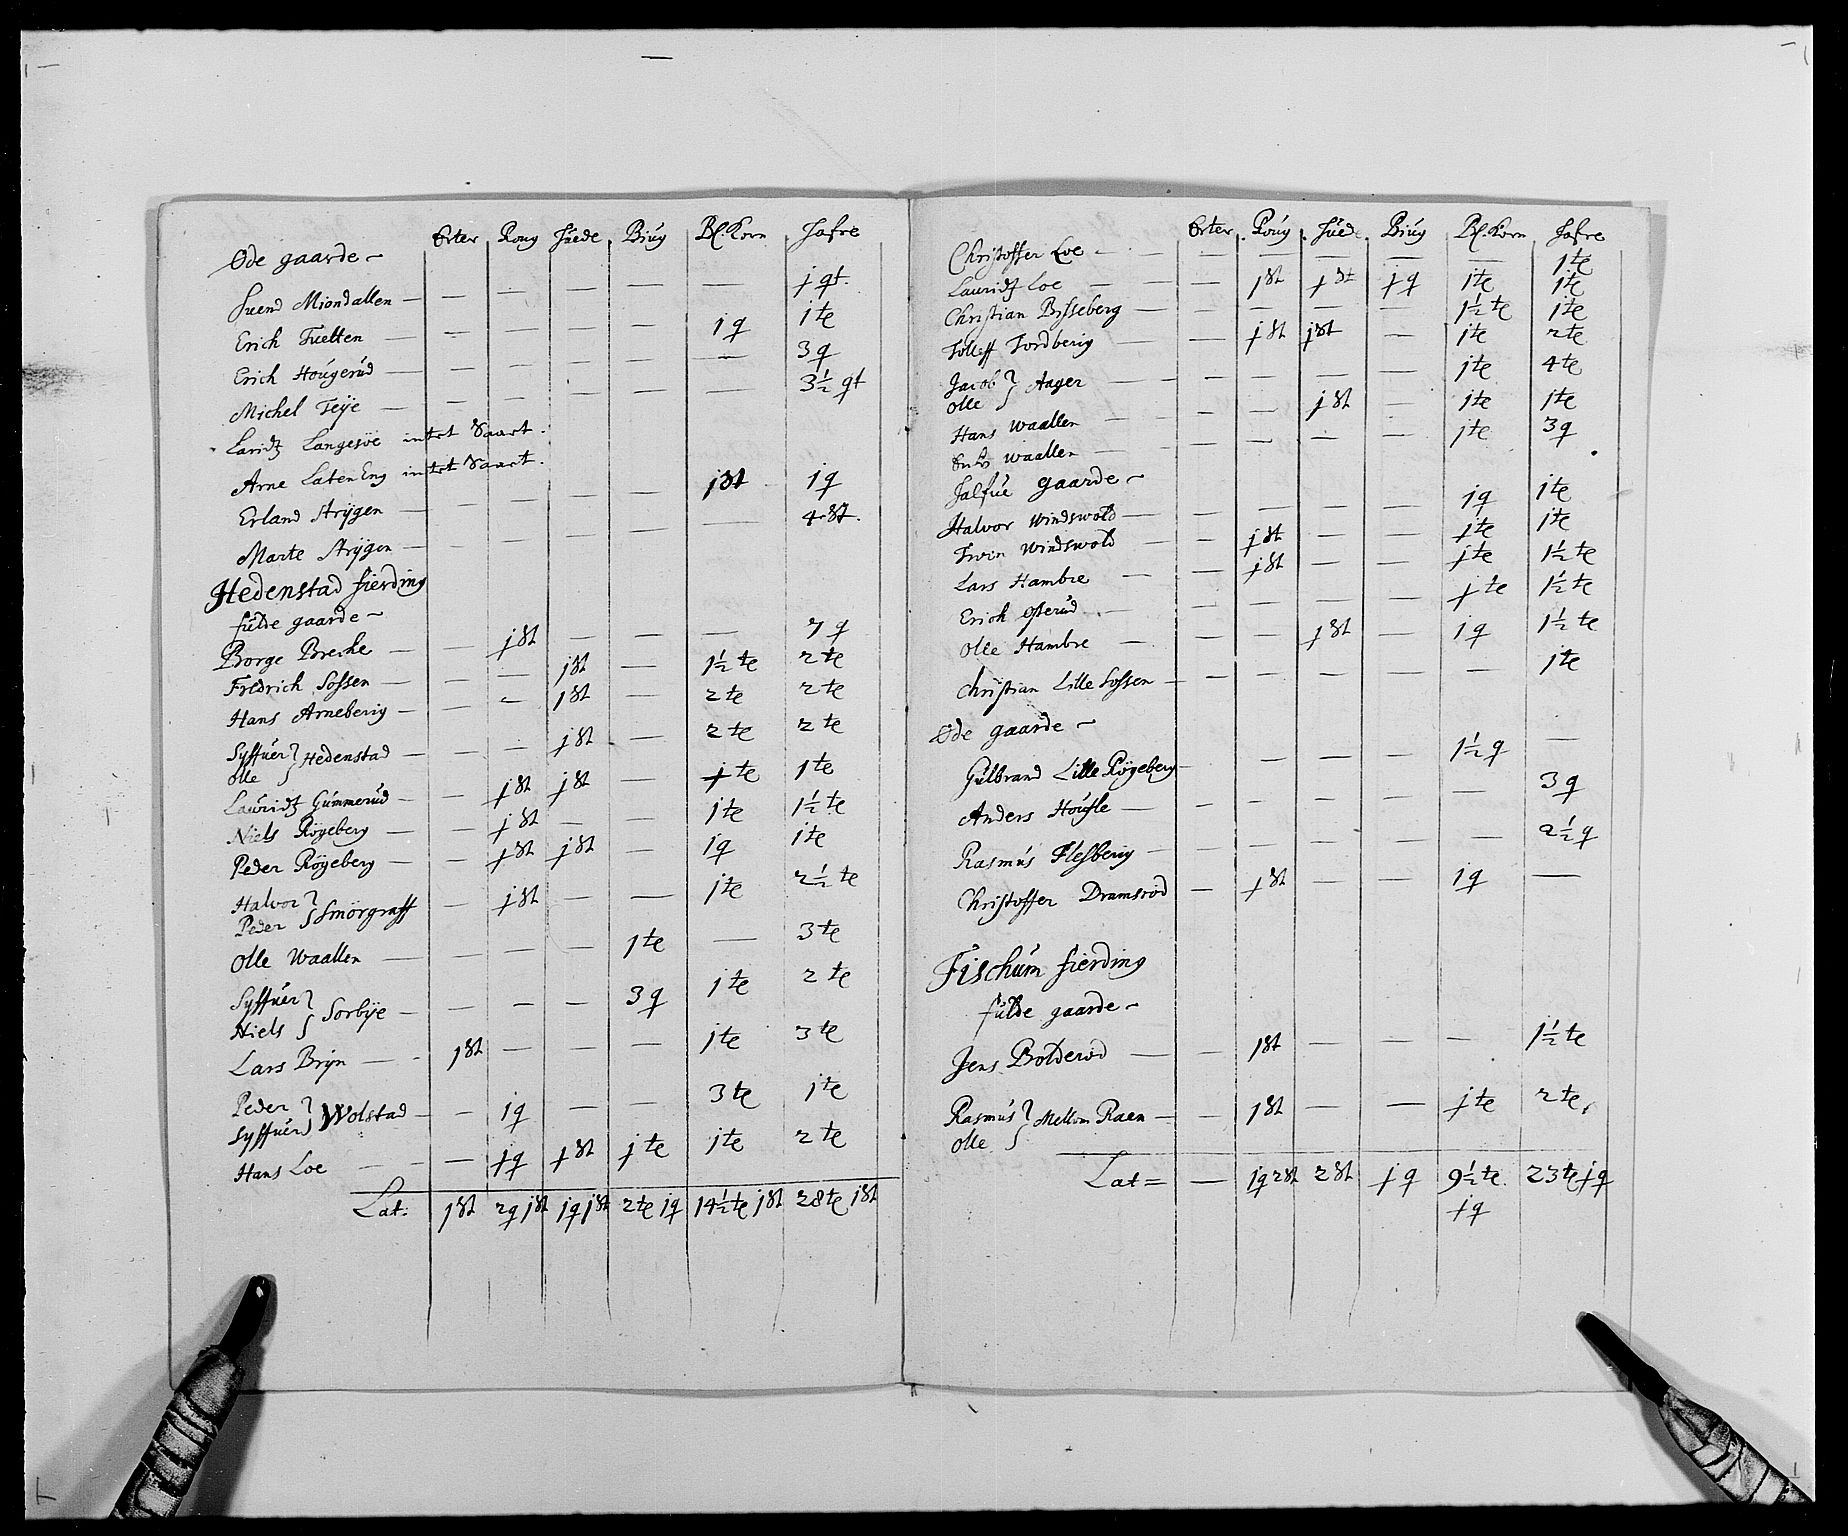 Erter Roug Huede Biug Bl. Korn Hafre
Øde gaarde
Suend Miondallen — — — — — j qt.
Erich Tuetten — — — — 1 q 1 te
Erich Hougerud — — — — — 3 q
Michel Teye — — — — — 3½ qt
Laridtz Langesøe intet Saaet.
Arne LatenEng intet Saaet.
Erland Strygen — — — — j st 1 q
Marte Strygen — — — — — 4 st.
Hedenstad fierding
fulde gaarde
Borge Breche — j st — — — 7 q
Fredrich Fossen — — j st — 1½ te 2 te
Hans Arneberig — — 1 st — 2 te 2 te
Syffuer } Hedenstad — — j st — 2 te 2 te
Olle
Lauridtz Gummerud — j st j st — j te 1 te
Niels Røyeberg — j st — — 1 te 1½ te
Peder Røyeberg — j st j st — 1 q 1 te
Halvor } Smørgraff — j st — — 1 te 2½ te
Peder
Olle Waallen — — — 1 te — 3 te
Syffuer } Sorbye — — — 3 q 1 te 2 te
Niels
Lars Bryn — 1 st — — — 1 te 3 te
Peder } Wolstad — 1 q — — 3 te 1 te
Syffuer
Hans Loe — j q j st j te 1 te 2 te
Lat: 1 st 2 q 1 st 1 q 1 st 2 te 1 q 14½ te j st 28 te 1 st
Erter Roug Huede Biug Bl. Korn Hafre
Christoffer Loe — — — — — 1 te
Lauridtz Loe — 1 st j st j q 1 te 1 te
Christian Bisseberg — — — — 1½ te 1 te
Tolleff Fordberig — j st j st — 1 te 2 te
Jacob } Aager — — — — 1 te 4 te
Olle
Hans Waallen — — j st — 1 te 1 te
Waallen — — — — 1 te 3 q
Halfue gaarde
Halvor Windswold — — — — 1 q 1 te
Windswold — j st — — 1 te 1 te
Lars Hambre — j st — — j te 1½ te
Erich — — — — j te 1½ te
Olle Hambre — — j st — 1 q 1½ te
Christian Lille Fossen — — — — — 1 te
Øde gaarde
Gulbrand Lille Røyeberg — — — — 1½ q —
Anders — — — — — 3 q
Rasmus Flesberig — — — — — 2½ q
Christoffer Dramsrod — j st — — 1 q —
Fischum fierding
fulde gaarde
Jens Bolderod — 1 st — — — 1½ te
Rasmus } Mellom Raen — 1 st — — j te 2 te
Olle
Lat = — 1 q 2 st 2 st j q 9½ te. 23 te j q
j q